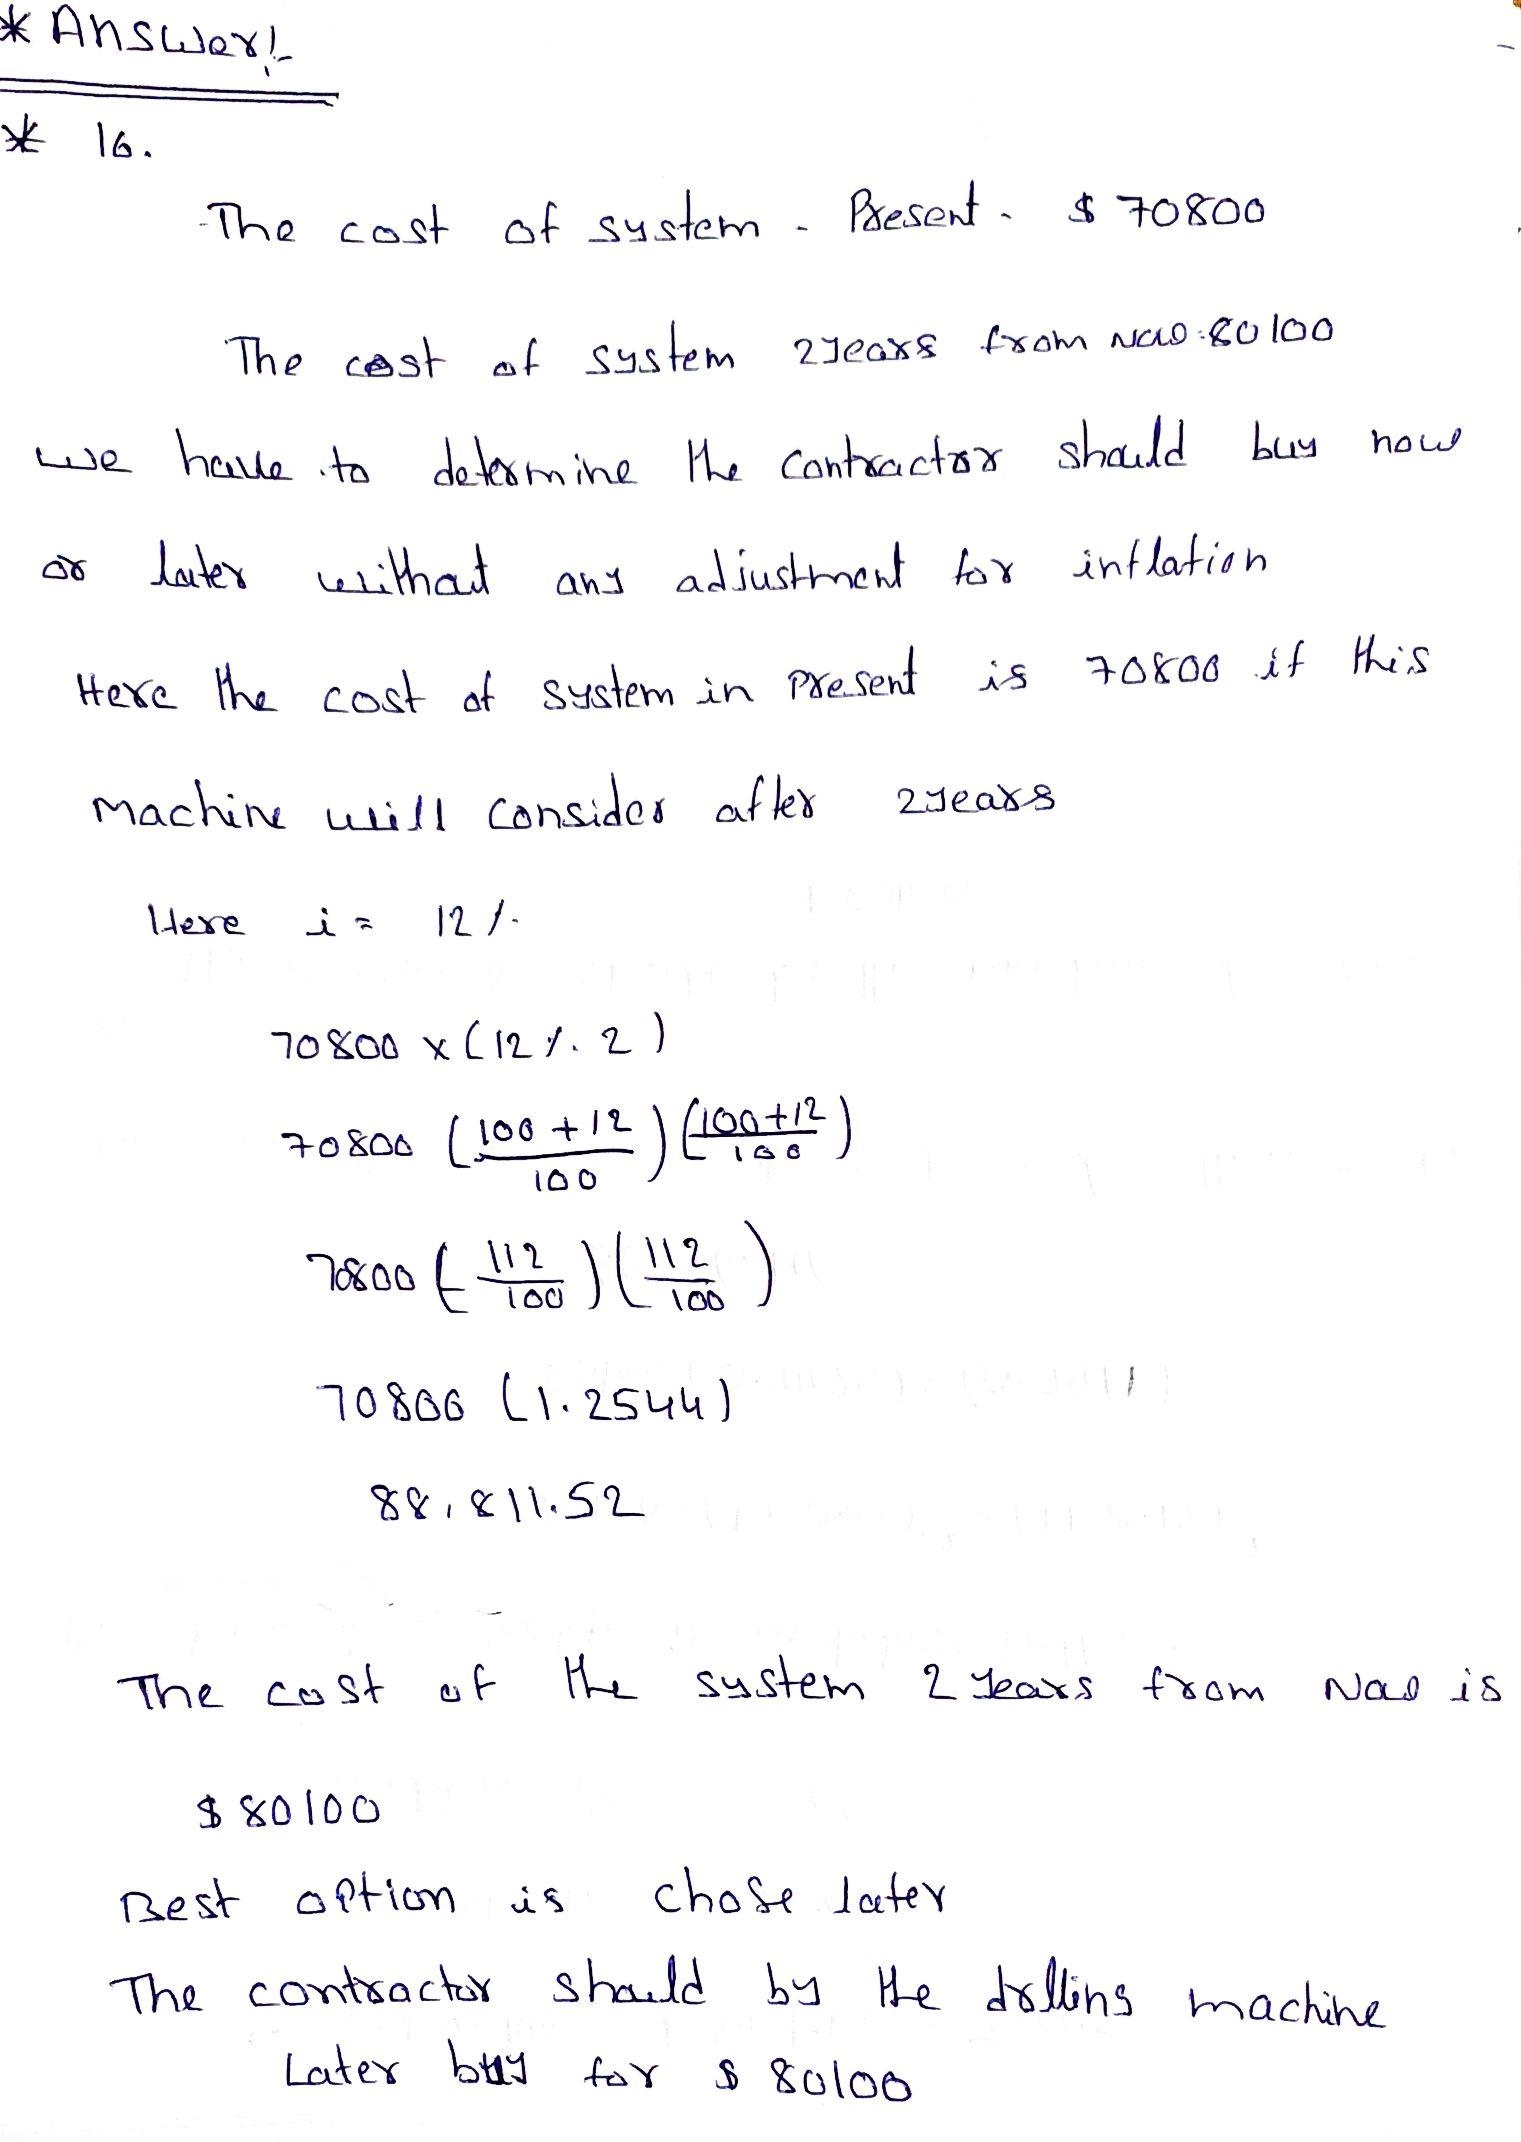 * Answer:-
* 16.
The cost of system - Present - $ 70800
The cost of system 2years from now:80100
we have to determine the contractor should buy now
or later without any adjustment for inflation
Here the cost of system in present is 70800 if this
machine will consider after 2years
Here i = 12 %
70800 x (12 %. 2)
70800 (100 + 12 / 100) (100+12 / 100)
70800 (112 / 100) (112 / 100)
70800 (1.2544)
88,811.52
The cost of the system 2 years from Now is
$ 80100
Best option is chose later
The contractor should by the drilling machine
Later buy for $ 80100